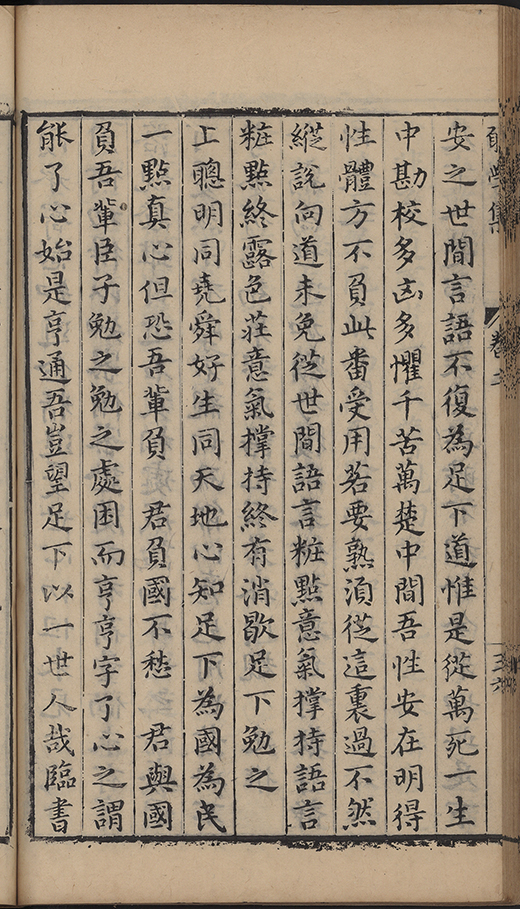 學集
卷之
三六
安之世間言語不復為足下道惟是從萬死一生
中勘校多凶多懼千苦萬楚中間吾性安在明得
性體方不負此番受用若要熟須從這裏過不然
縱說向道未免從世間語言粧點意氣撑持語言
粧點終露色莊意氣撑持終有消歇足下勉之
上聰明同堯舜好生同天地心知足下為國為民
一點真心但恐吾輩負 君負國不愁 君與國
負吾輩臣子勉之勉之處困而亨亨字了心之謂
能了心始是亨通吾豈望足下以一世人哉臨書